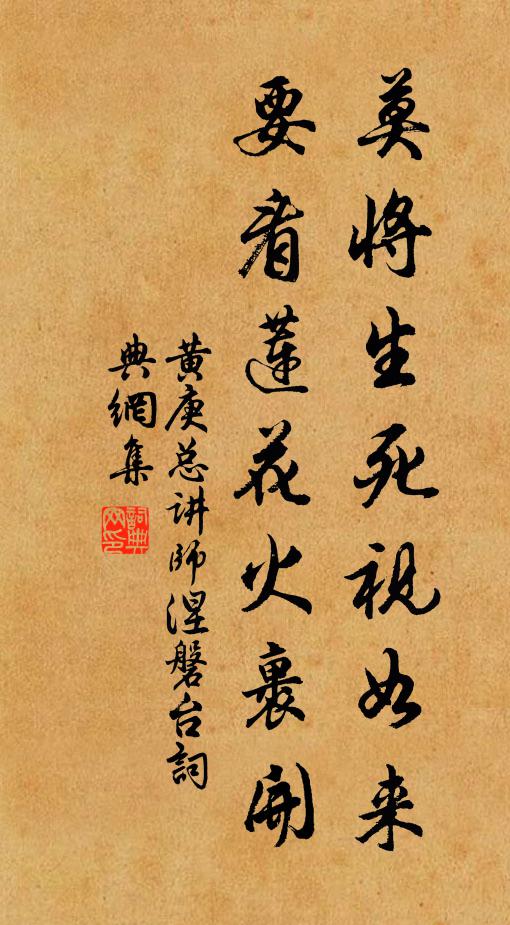 莫将生死视如来
要看莲花火裹开
黄庚总讲师涅磐台詞
典網集
詞典網印